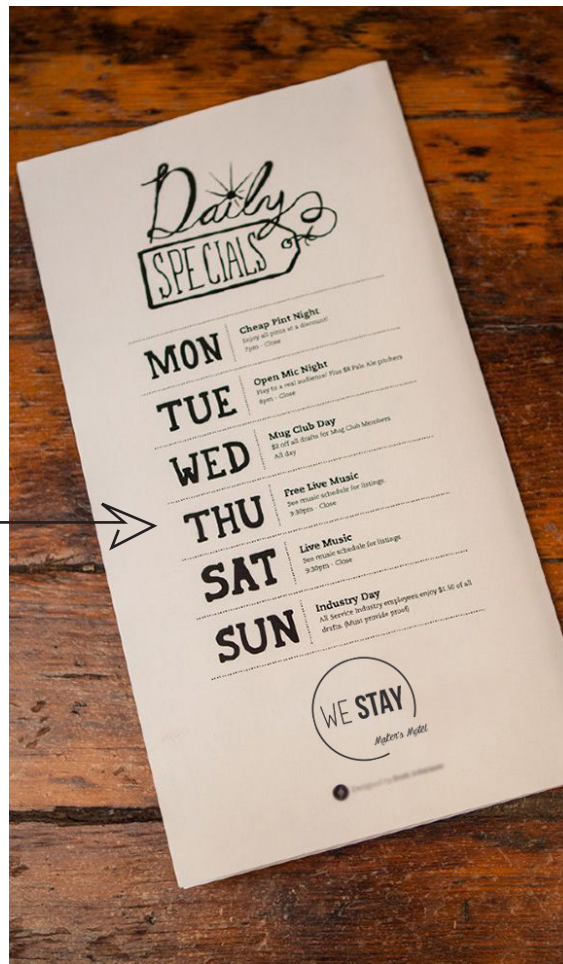 Daily
SPECIALS
MON
Cheap Pint Night
Enjoy all pints at a discount!
7pm - Close
TUE
Open Mic Night
Play to a real audience! Plus $8 Pale Ale pitchers
8pm - Close
WED
Mug Club Day
$2 off all drafts for Mug Club Members
All day
THU
Free Live Music
See music schedule for listings.
9:30pm - Close
SAT
Live Music
See music schedule for listings
9:30pm - Close
SUN
Industry Day
All Service Industry employees enjoy $1.50 of all
drafts. (Must provide proof)
WE STAY
Maker's Motel
Designed by